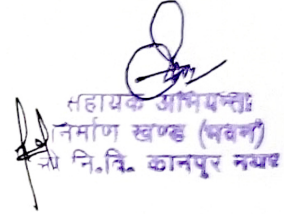 सहायक अभियन्ता
निर्माण खण्ड (भवन)
लो नि.वि. कानपुर नगर